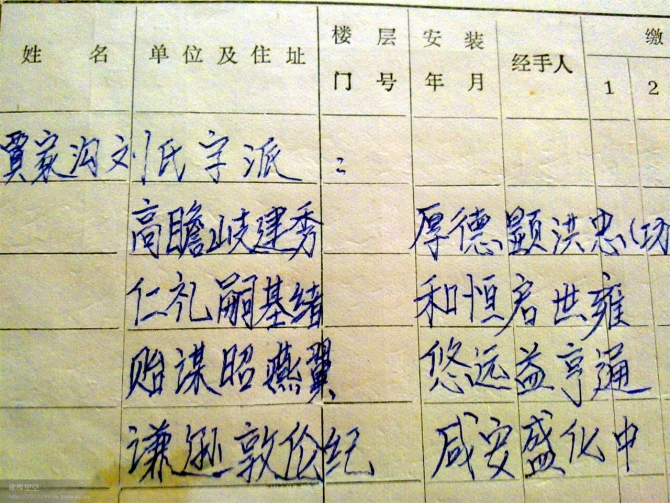 姓名 单位及住址 楼层门号 安装年月 经手人 缴
1 2
贾家沟刘氏字派：
高瞻岐建秀 厚德显洪忠(功
仁礼嗣基绪 和恒君世雍
贻谋昭燕翼 悠远益亨通
谦逊敦伦纪 咸安盛化中